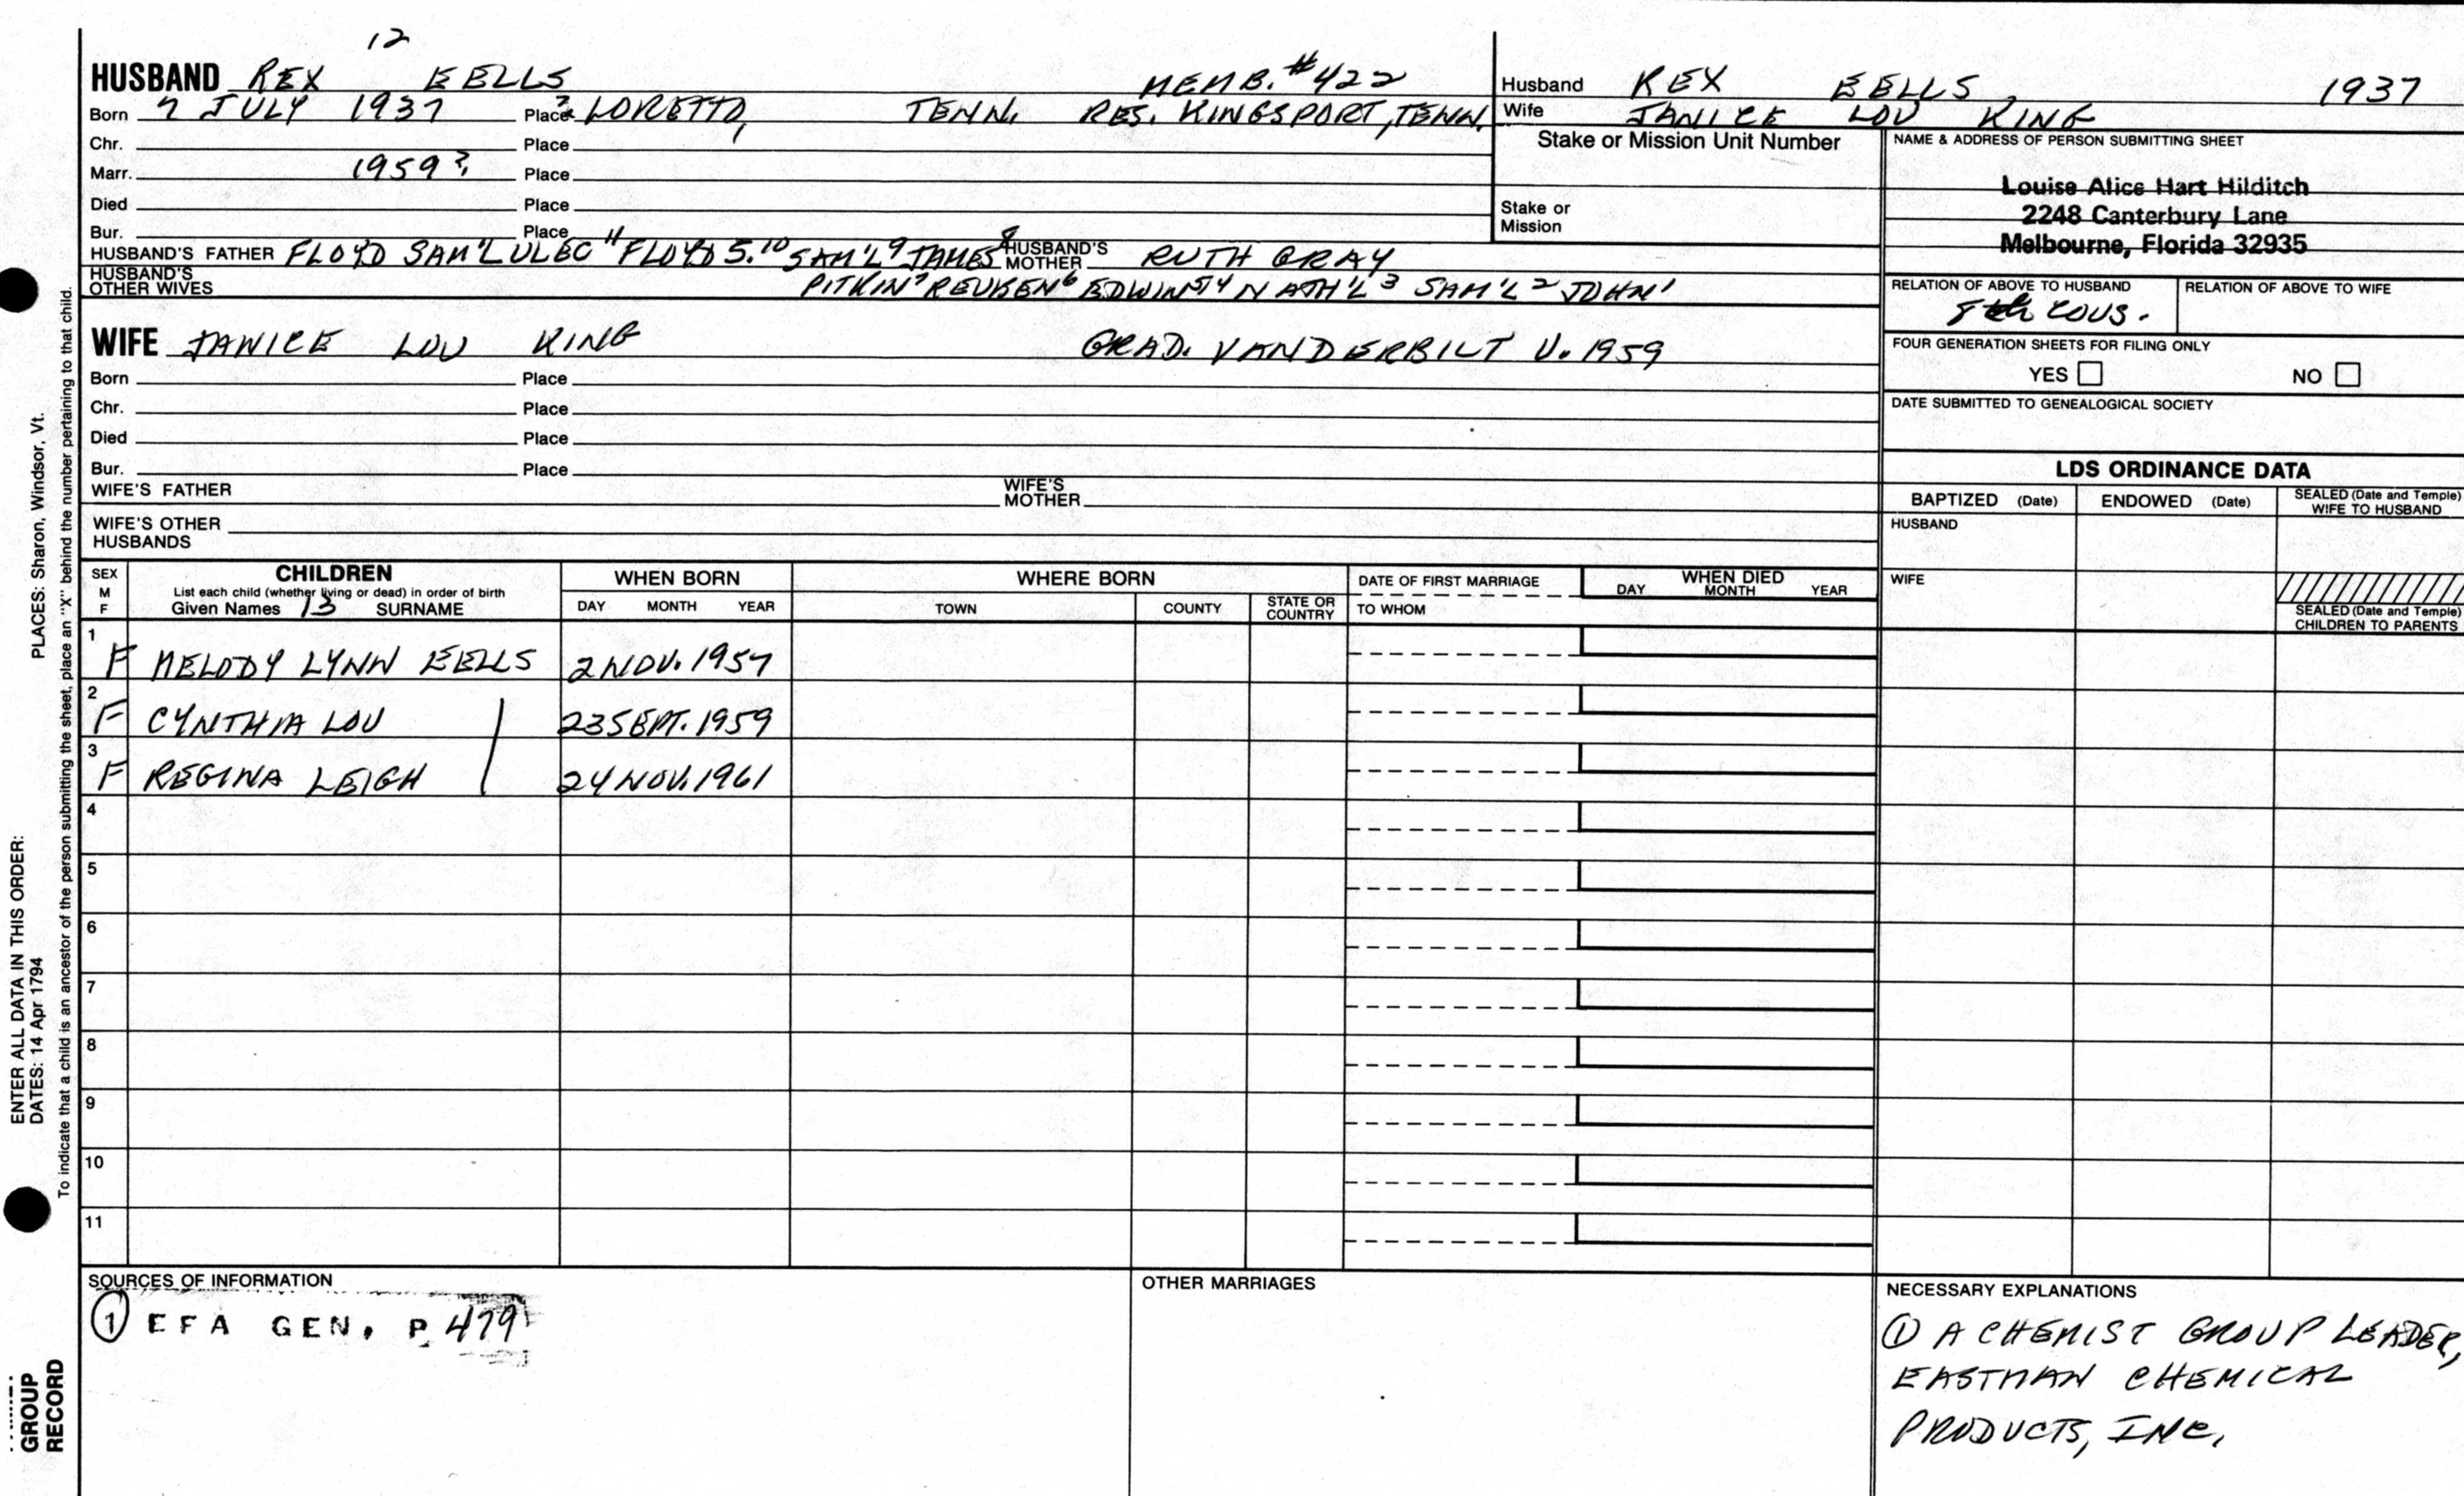 12
HUSBAND REX EELLS MEMB. #422
Born 7 JULY 1937 Place ? LORETTO, TENN. RES. KINGSPORT, TENN.
Chr. Place
Marr. 1959? Place
Died Place
Bur. Place
HUSBAND'S FATHER FLOYD SAM'L 11 FLOYD S.10 SAM'L9 JAMES8 HUSBAND'S MOTHER RUTH GRAY
HUSBAND'S OTHER WIVES PITKIN7 REUBEN6 EDWIN54 NATH'L3 SAM'L2 JOHN1
Husband REX EELLS 1937
Wife JANICE LOU KING
Stake or Mission Unit Number
Stake or
Mission
NAME & ADDRESS OF PERSON SUBMITTING SHEET
Louise Alice Hart Hilditch
2248 Canterbury Lane
Melbourne, Florida 32935
RELATION OF ABOVE TO HUSBAND RELATION OF ABOVE TO WIFE
8th COUS.
FOUR GENERATION SHEETS FOR FILING ONLY
YES NO
DATE SUBMITTED TO GENEALOGICAL SOCIETY
WIFE JANICE LOU KING GRAD. VANDERBILT U. 1959
Born Place
Chr. Place
Died Place
Bur. Place
WIFE'S FATHER WIFE'S MOTHER
WIFE'S OTHER
HUSBANDS
LDS ORDINANCE DATA
BAPTIZED (Date) ENDOWED (Date) SEALED (Date and Temple) WIFE TO HUSBAND
HUSBAND
WIFE
SEALED (Date and Temple)
CHILDREN TO PARENTS
SEX M F
CHILDREN
List each child (whether living or dead) in order of birth
Given Names 13 SURNAME
WHEN BORN
DAY MONTH YEAR
WHERE BORN
TOWN COUNTY STATE OR COUNTRY
DATE OF FIRST MARRIAGE
TO WHOM
WHEN DIED
DAY MONTH YEAR
1 F MELODY LYNN EELLS 2 NOV. 1957
2 F CYNTHIA LOU 23 SEPT. 1959
3 F REGINA LEIGH 24 NOV. 1961
4
5
6
7
8
9
10
11
SOURCES OF INFORMATION
① EFA GEN. P. 479
OTHER MARRIAGES
NECESSARY EXPLANATIONS
① A CHEMIST GROUP LEADER,
EASTMAN CHEMICAL
PRODUCTS, INC.
ENTER ALL DATA IN THIS ORDER:
DATES: 14 Apr 1794 PLACES: Sharon, Windsor, Vt.
To indicate that a child is an ancestor of the person submitting the sheet, place an "X" behind the number pertaining to that child.
GROUP
RECORD